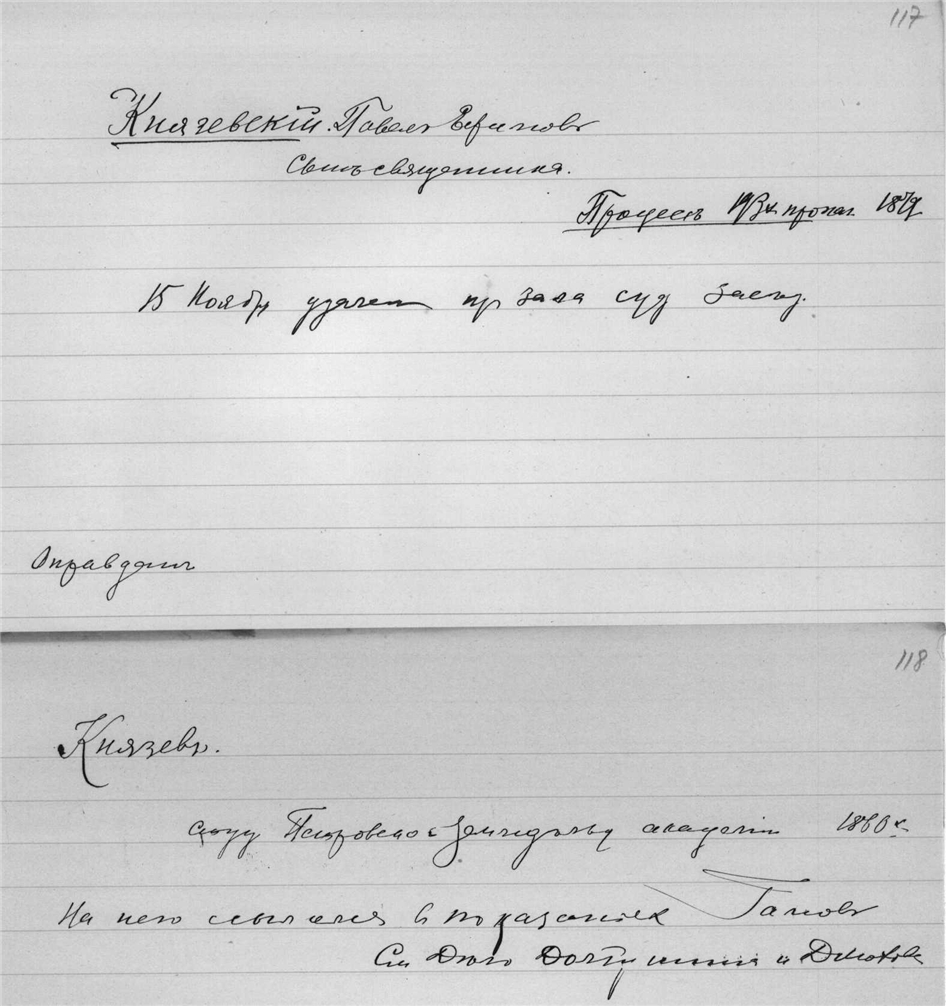 117
Княжевскій. Павелъ Ефимовъ
Сынъ священника.
Процессъ 193х проп. 187/9
15 Ноября удален из зала суд засед.
Оправданъ
118
Князевъ.
студ Петровской Земледѣльч академіи 1860х
На него ссылался в показаніях Гамовъ
См Дѣло Долгушина и Дмохов